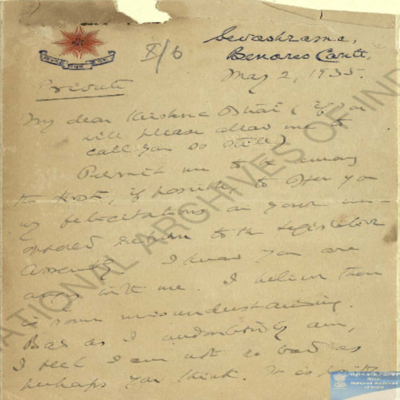 X/6
Sevashrama,
Benares Cantt.,
May 2, 1935.
Private
My dear Krishna Bhai (if you
will please allow me to
call you so still)
Permit me to be among
the first, if possible to offer you
my felicitations on your un-
opposed return to the Legislative
Assembly. I know you are
angry with me. I believe there
is some misunderstanding.
Bad as I undoubtedly am,
I feel I am not so bad as
perhaps you think. It is
NATIONAL ARCHIVES OF INDIA